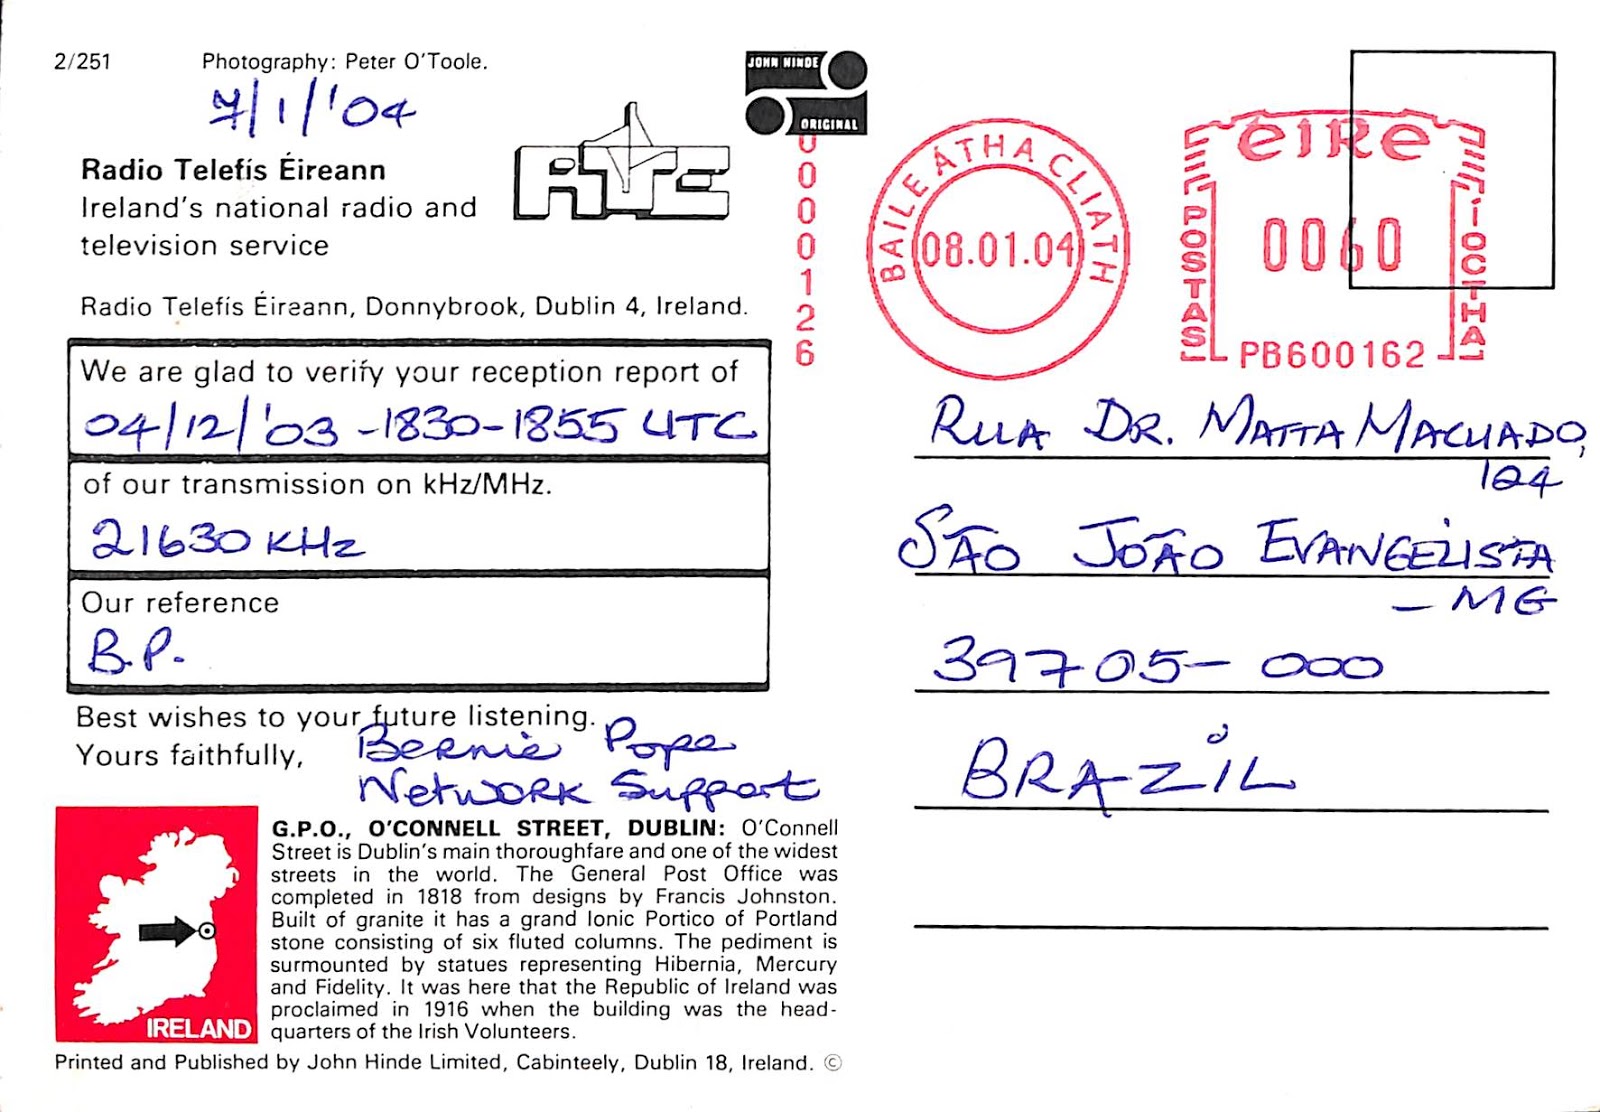 2/251
Photography: Peter O'Toole.
7/1/'04
Radio Telefís Éireann
Ireland's national radio and
television service
RTE
Radio Telefís Éireann, Donnybrook, Dublin 4, Ireland.
We are glad to verify your reception report of
04/12/'03 - 1830 - 1855 UTC
of our transmission on kHz/MHz.
21630 KHz
Our reference
B.P.
Best wishes to your future listening.
Yours faithfully,
Bernie Pope
Network Support
IRELAND
G.P.O., O'CONNELL STREET, DUBLIN: O'Connell
Street is Dublin's main thoroughfare and one of the widest
streets in the world. The General Post Office was
completed in 1818 from designs by Francis Johnston.
Built of granite it has a grand Ionic Portico of Portland
stone consisting of six fluted columns. The pediment is
surmounted by statues representing Hibernia, Mercury
and Fidelity. It was here that the Republic of Ireland was
proclaimed in 1916 when the building was the head-
quarters of the Irish Volunteers.
Printed and Published by John Hinde Limited, Cabinteely, Dublin 18, Ireland. ©
JOHN HINDE
ORIGINAL
0000126
BAILE ÁTHA CLIATH
08.01.04
éire
POSTAS
0060
ÍOCTHA
PB600162
RUA DR. MATTA MACHADO,
124
SÃO JOÃO EVANGELISTA
- MG
39705-000
BRAZIL